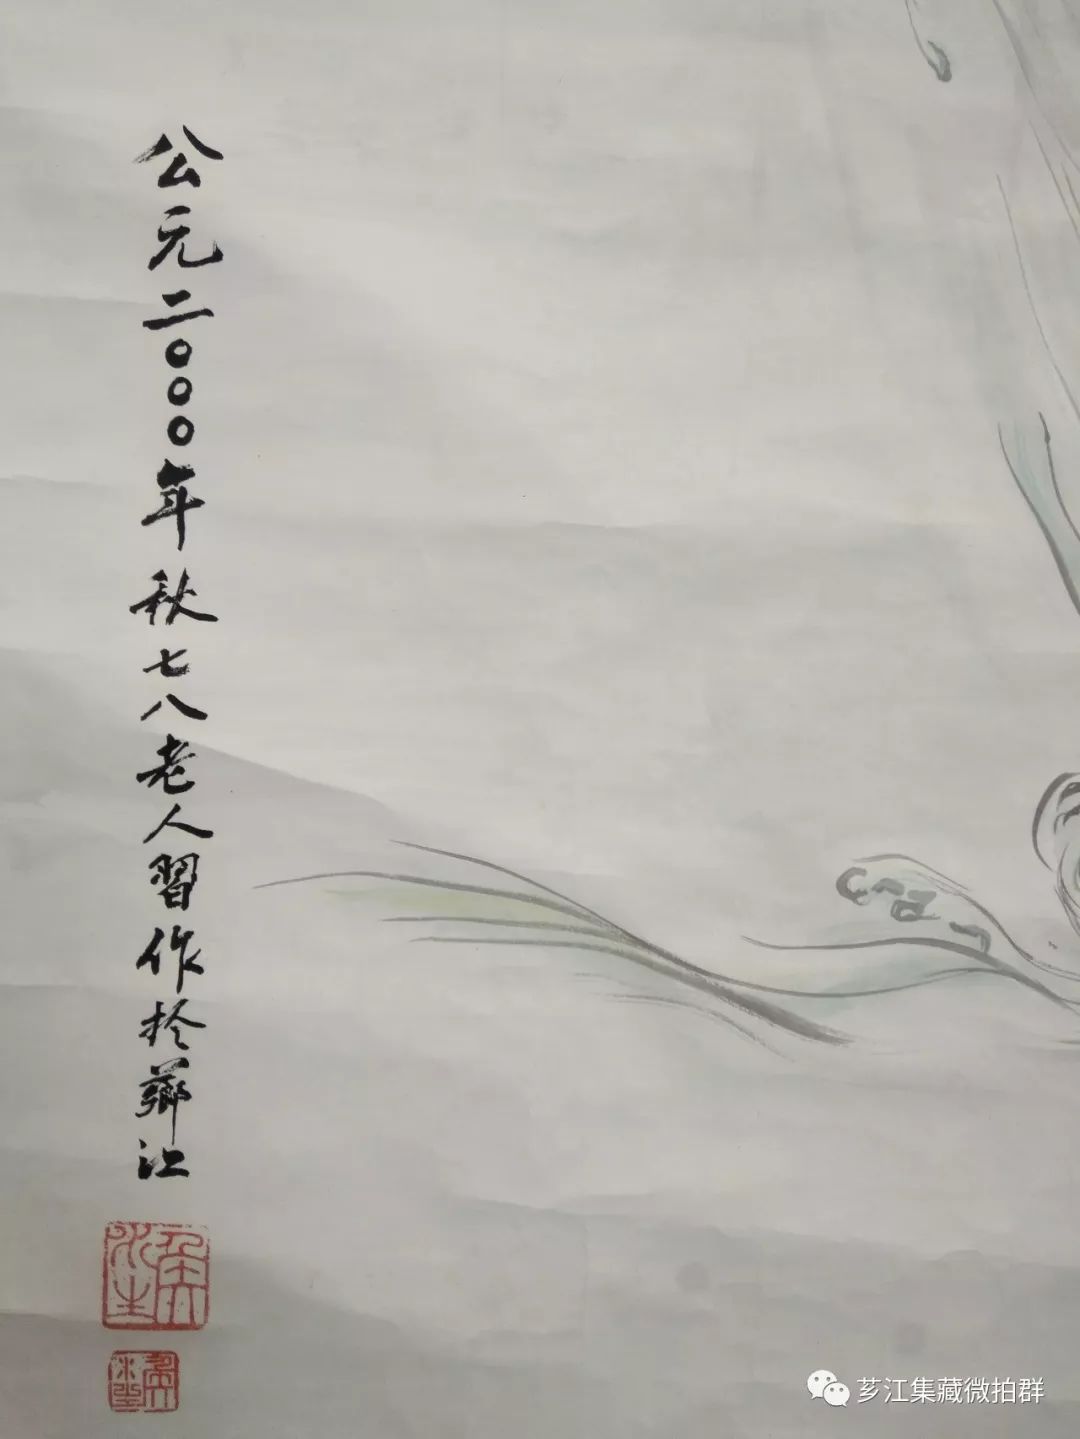 公元二〇〇〇年秋七八老人習作於薌江
芗江集藏微拍群